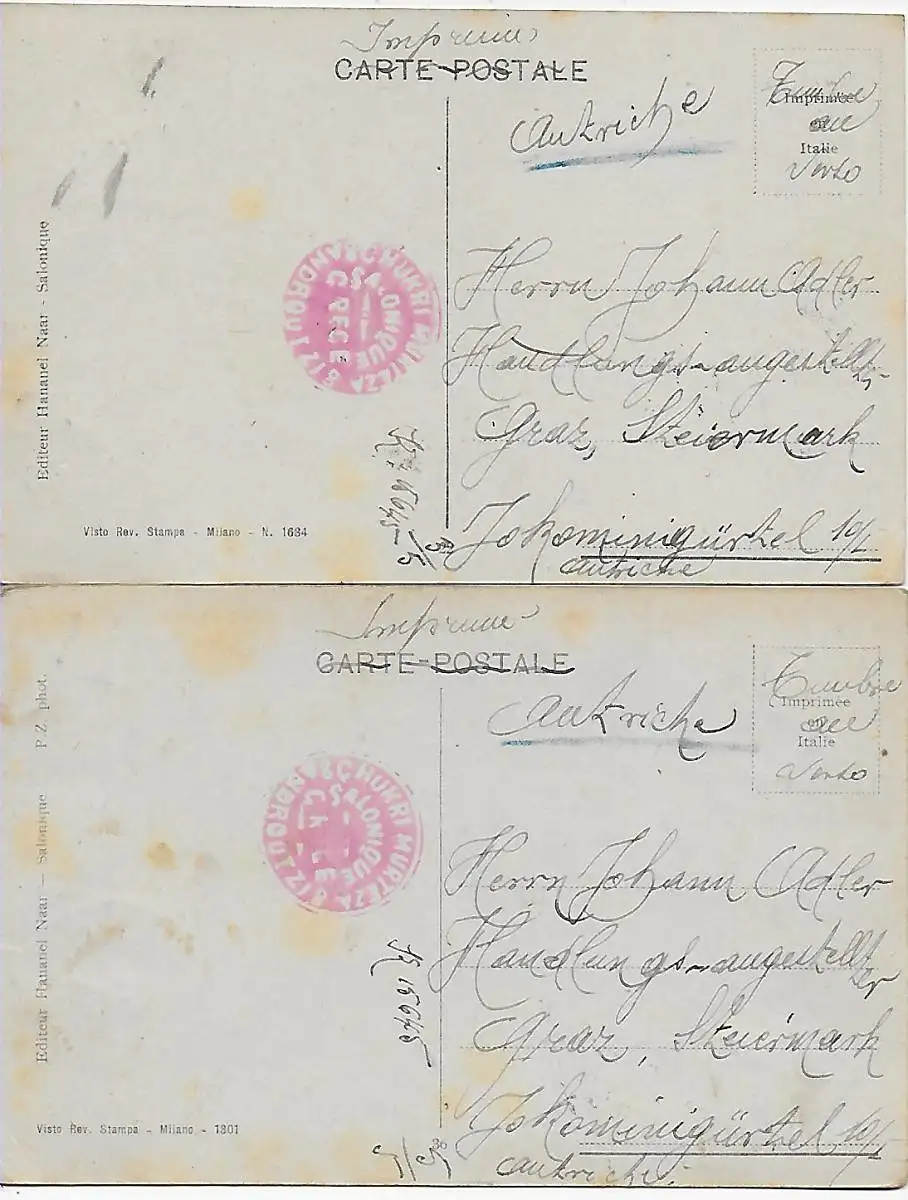 Imprimé
CARTE POSTALE
Autriche
Timbre
au
verso
Imprimée
en
Italie
Editeur Hananel Naar - Salonique
SCHUKRI MURTEZA & IZ
SALONIQUE
GRECE
Herrn Johann Adler
Handlungs-angestellter
Graz, Steiermark
Jokominigürtel 10/I
Autriche
Visto Rev. Stampa - Milano - N. 1684
Imprimé
CARTE-POSTALE
Autriche
Timbre
au
verso
Imprimée
en
Italie
Editeur Hananel Naar - Salonique P. Z. phot.
SCHUKRI MURTEZA & IZ
SALONIQUE
Herrn Johann Adler
Handlungs-angestellter
Graz, Steiermark
Jokominigürtel 10/I
Autriche.
Visto Rev. Stampa - Milano - 1301
36